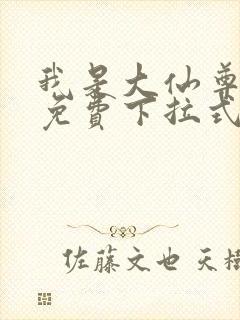 我是大仙尊
免费下拉式
佐藤文也 天樹